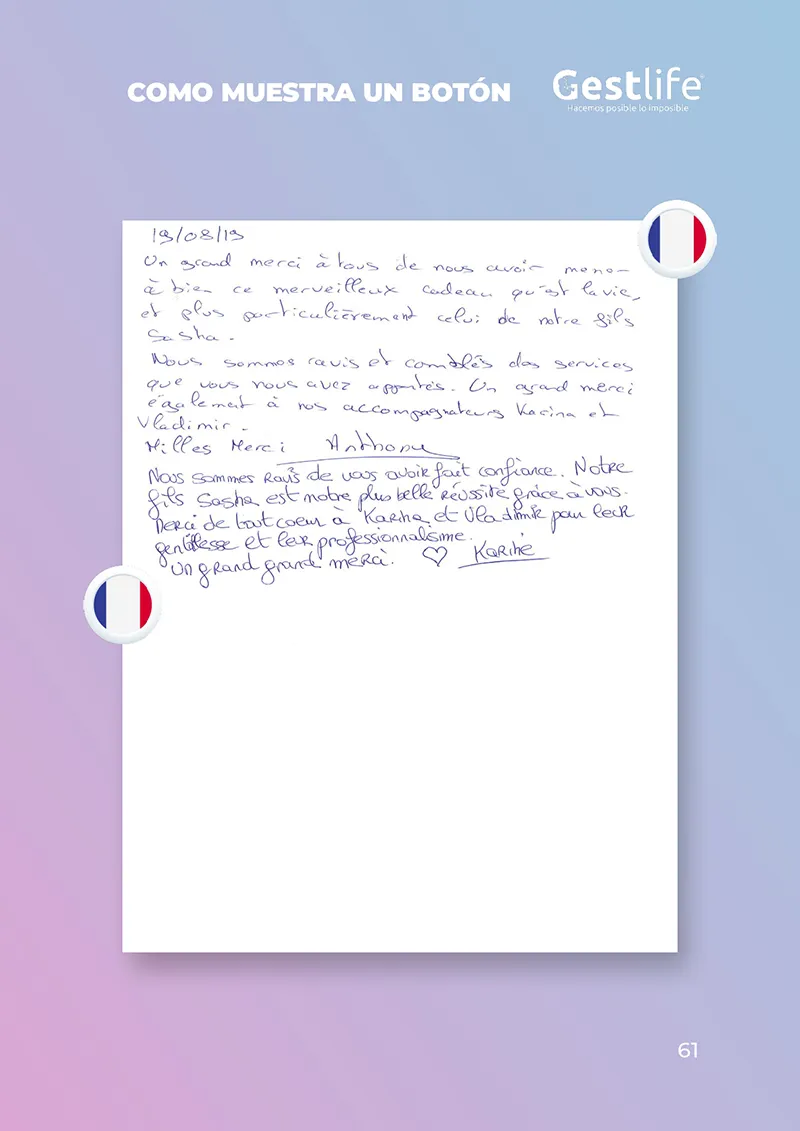 COMO MUESTRA UN BOTÓN
Gestlife
Hacemos posible lo imposible
19/08/19
Un grand merci à tous de nous avoir mener
à bien ce merveilleux cadeau qu'est la vie,
et plus particulièrement celui de notre fils
Sasha.
Nous sommes ravis et comblés des services
que vous nous avez apportés. Un grand merci
également à nos accompagnateurs Karina et
Vladimir.
Milles Merci Anthony
Nous sommes ravis de vous avoir fait confiance. Notre
fils Sasha est notre plus belle réussite grâce à vous.
Merci de tout coeur à Karina et Vladimir pour leur
gentillesse et leur professionnalisme.
Un grand grand merci. ♡ Karine
61